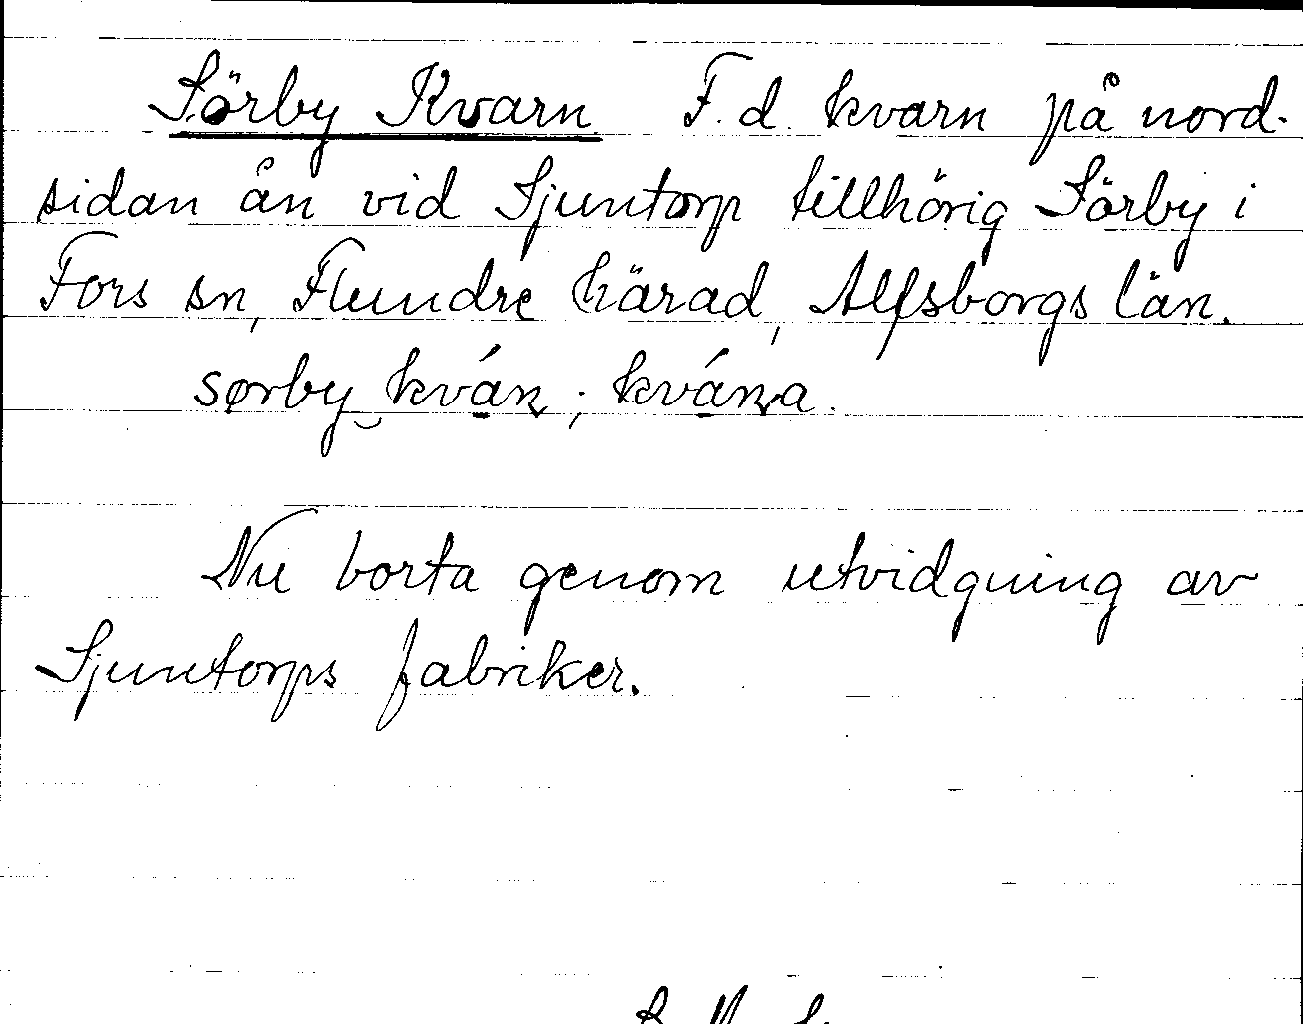 Sörby Kvarn F.d. kvarn på nord-
sidan ån vid Sjuntorp tillhörig Sörby i
Fors sn, Flundre härad, Älfsborgs län.
sørby kván; kvána.
Nu borta genom utvidgning av
Sjuntorps fabriker.